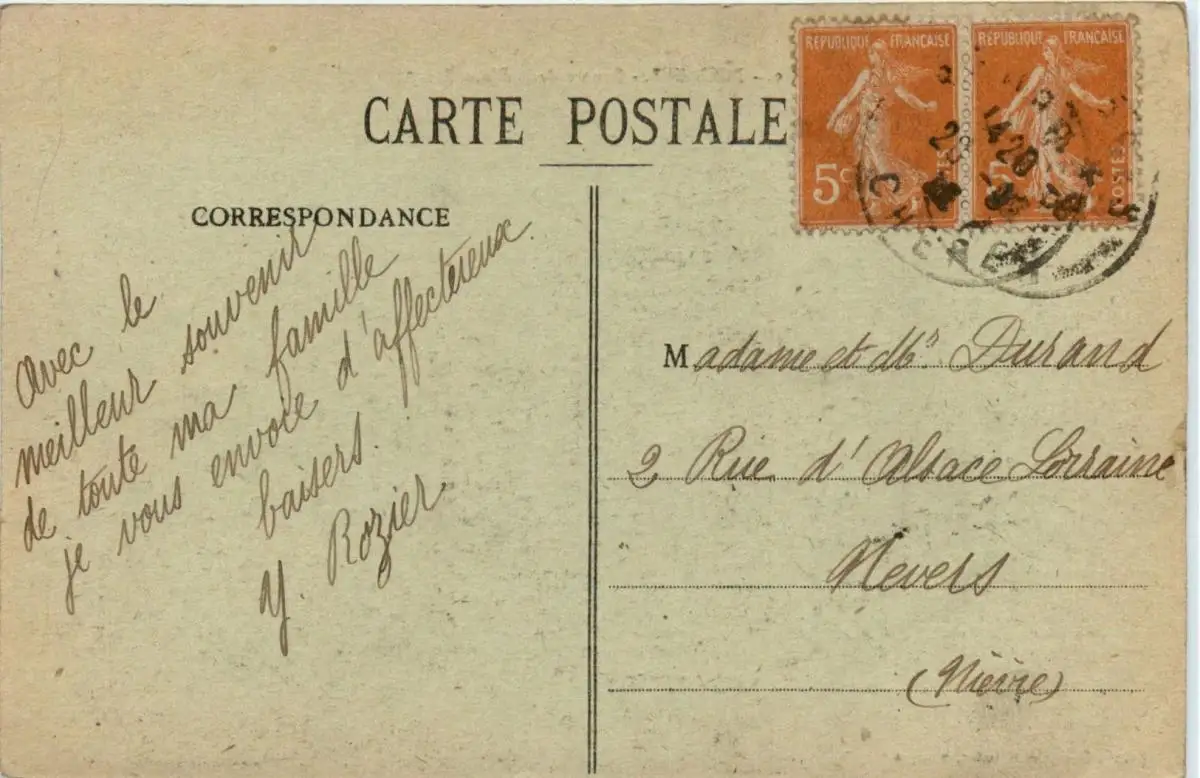 CARTE POSTALE
RÉPUBLIQUE FRANÇAISE
5c
POSTES
RÉPUBLIQUE FRANÇAISE
5c
POSTES
CORRESPONDANCE
Avec le
meilleur souvenir
de toute ma famille
je vous envoie d'affectueux
baisers.
Y. Rozier
Madame et Mr Durand
2 Rue d'Alsace Lorraine
Nevers
(Nièvre)